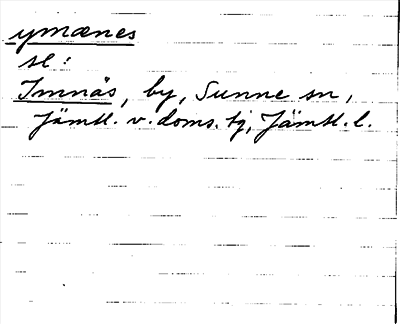 ymænes
se:
Imnäs, by, Sunne sn,
Jämtl. v. doms. tj, Jämtl. l.